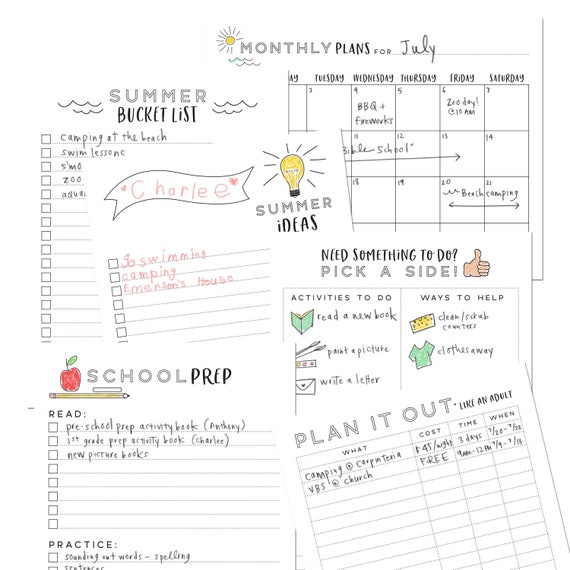 MONTHLY PLANS FOR July
AY TUESDAY WEDNESDAY THURSDAY FRIDAY SATURDAY
3 4 5 6 7
BBQ + fireworks
zoo day! @ 10 AM
11 12 13 14
Bible School"
18 19 20 21
Beach camping
SUMMER
BUCKET LIST
camping at the beach
swim lessons
s'mo
zoo
aqua
Charlee
SUMMER
IDEAS
Go swimming
camping
Emerson's House
NEED SOMETHING TO DO?
PICK A SIDE!
ACTIVITIES TO DO
read a new book
paint a picture
write a letter
WAYS TO HELP
clean/scrub
counters
clothes away
SCHOOL PREP
READ:
pre-school prep activity book (Anthony)
1st grade prep activity book (charlee)
new picture books
PRACTICE:
sounding out words - spelling
sentences
PLAN IT OUT *LIKE AN ADULT
WHAT COST TIME WHEN
camping @ carpinteria $45/night 3 days 7/20-7/22
VBS @ church FREE 9am-12pm 7/9-7/13